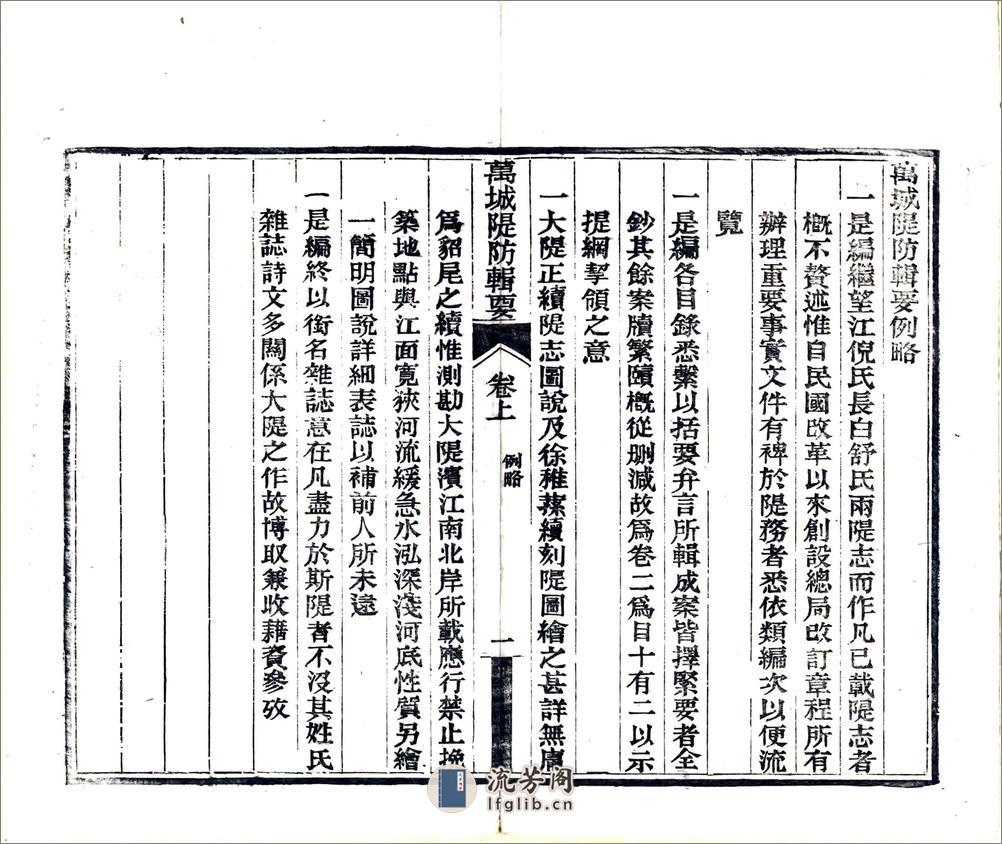 萬城隄防輯要例略
一是編繼望江倪氏長白舒氏兩隄志而作凡已載隄志者
概不贅述惟自民國改革以來創設總局改訂章程所有
辦理重要事實文件有裨於隄務者悉依類編次以便流
覽
一是編各目錄悉繫以括要弁言所輯成案皆擇緊要者全
鈔其餘案牘繁賾概從刪減故爲卷二爲目十有二以示
提綱挈領之意
一大隄正續隄志圖說及徐稚蓀續刻隄圖繪之甚詳無庸
萬城隄防輯要
卷上
例略
一
爲貂尾之續惟測勘大隄濱江南北岸所載應行禁止挽
築地點與江面寬狹河流緩急水泓深淺河底性質另繪
一簡明圖說詳細表誌以補前人所未逮
一是編終以銜名雜誌意在凡盡力於斯隄者不沒其姓氏
雜誌詩文多關係大隄之作故博取兼收藉資參攷
流芳阁
lfglib.cn